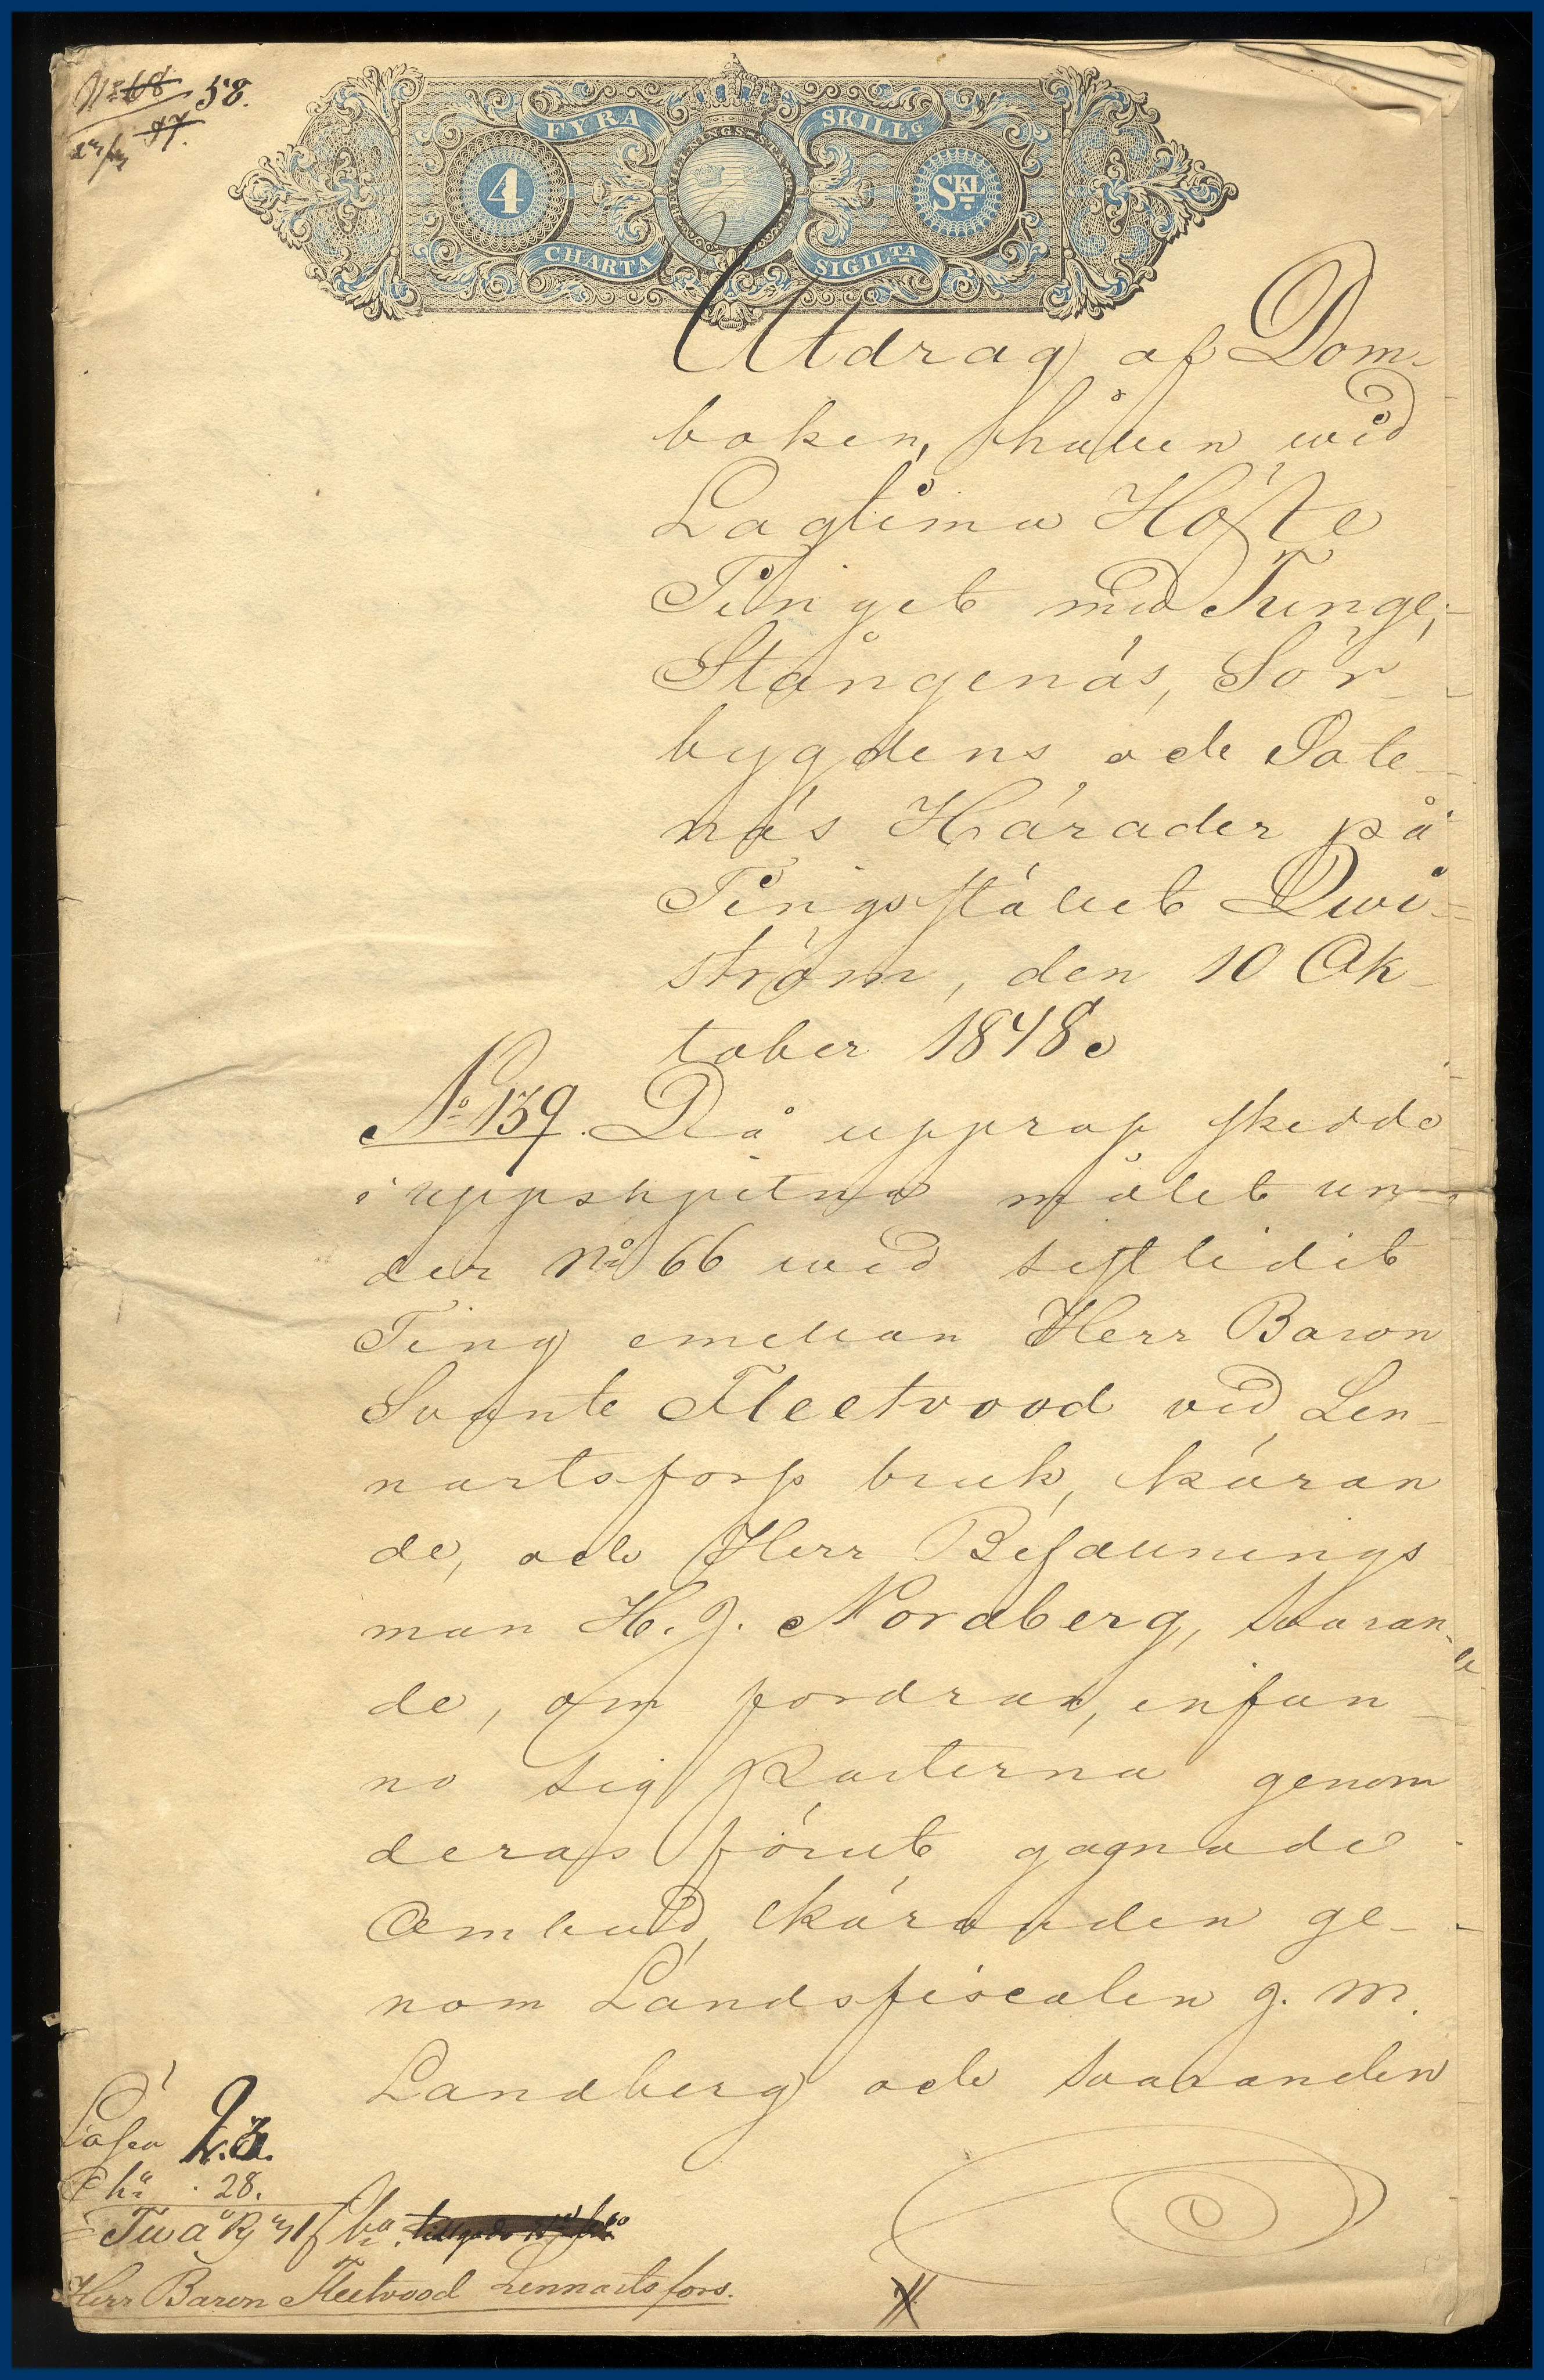 58.
FYRA SKILLG
4 SKL
CHARTA SIGILTA
Utdrag af Dom-
boken, hållen wid
Lagtima Höste
Tinget med Tunge,
Stångenäs, Sör-
bygdens och Sote-
näs Härader på
Tingsstället Qwi-
ström, den 10 Ok-
tober 1848.
No 139. Då upprop skedde
i uppskjutna målet un-
der No 66 wid sistlidit
Ting emellan Herr Baron
Svante Fleetwood vid Len-
nartsfors bruk, käran
de, och Herr Befallnings
man H. J. Nordberg, svaran-
de, om fordran, infun-
no sig Parterna genom
deras förut gagnade
Ombud, käranden ge-
nom Landsfiscalen J. M.
Landberg och svaranden
Lösen
Cha 28.
Herr Baron Fleetwood Lennartsfors.